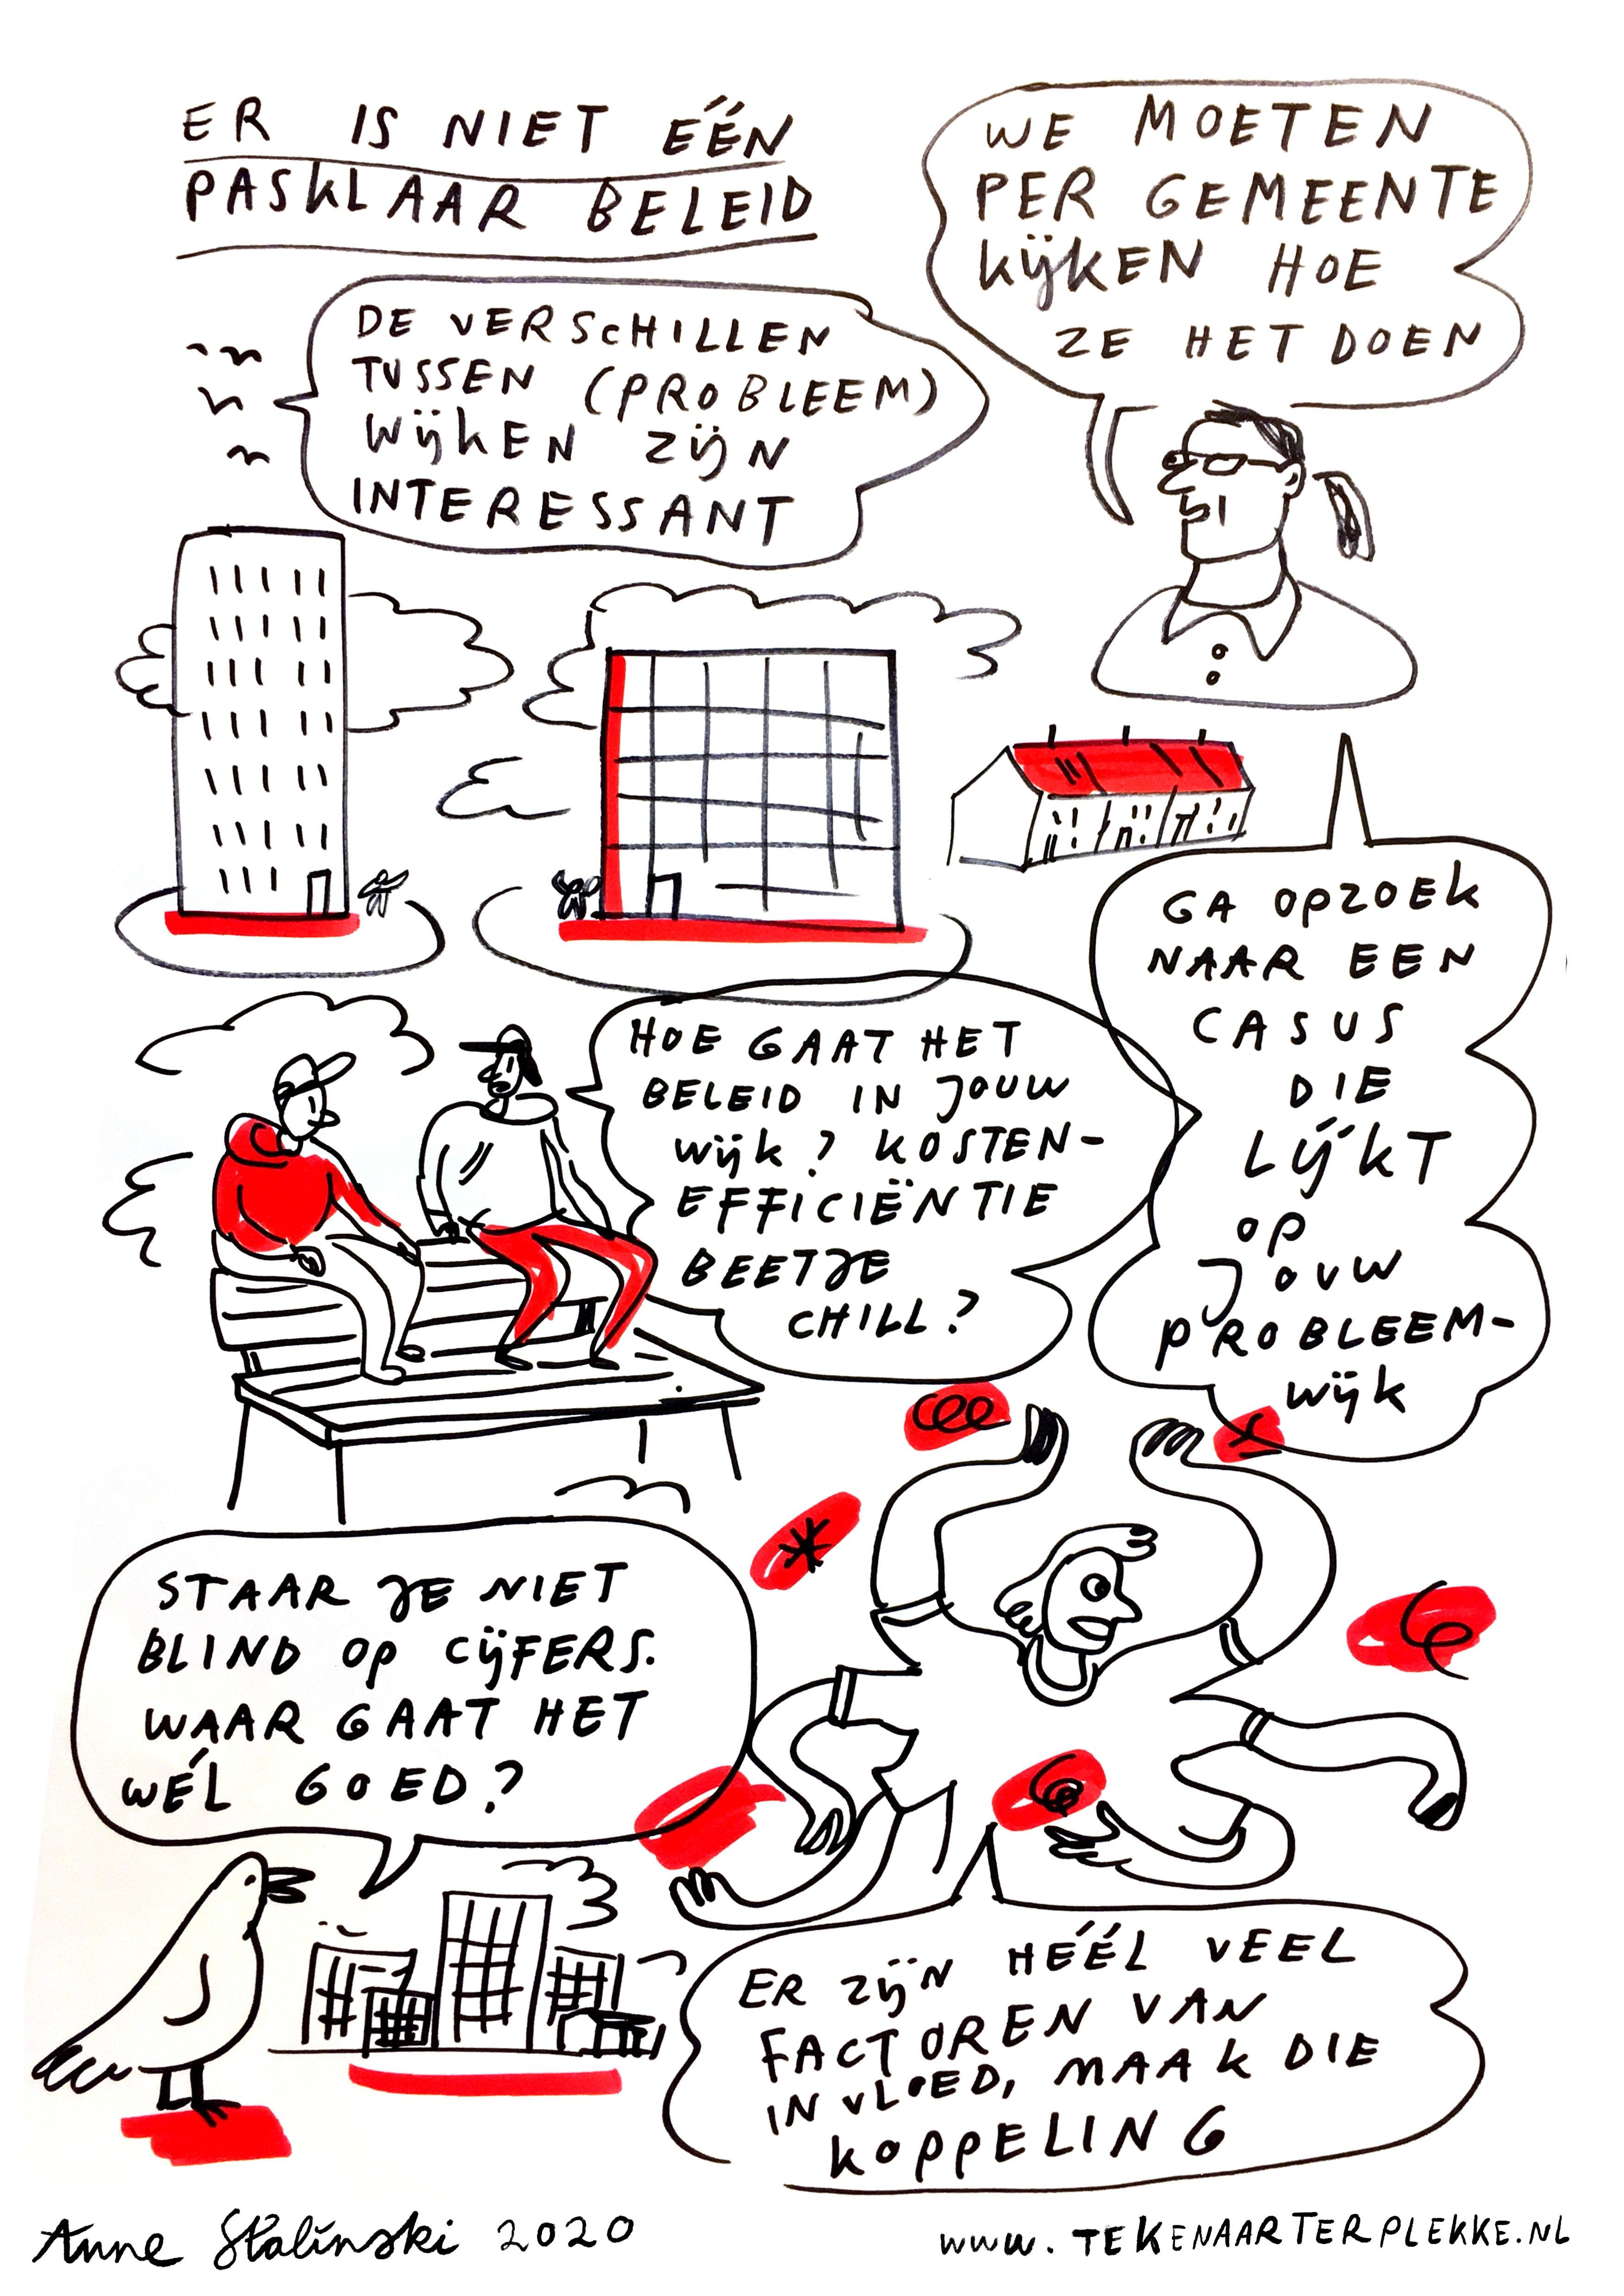 ER IS NIET ÉÉN
PASKLAAR BELEID
WE MOETEN
PER GEMEENTE
KIJKEN HOE
ZE HET DOEN
DE VERSCHILLEN
TUSSEN (PROBLEEM)
WIJKEN ZIJN
INTERESSANT
GA OPZOEK
NAAR EEN
CASUS
DIE
LÍJKT
OP
JOUW
PROBLEEM-
WIJK
HOE GAAT HET
BELEID IN JOUW
WIJK? KOSTEN-
EFFICIËNTIE
BEETJE
CHILL?
STAAR JE NIET
BLIND OP CIJFERS.
WAAR GAAT HET
WÉL GOED?
ER ZIJN HÉÉL VEEL
FACTOREN VAN
INVLOED, MAAK DIE
KOPPELING
Anne Stalinski 2020
WWW.TEKENAARTERPLEKKE.NL